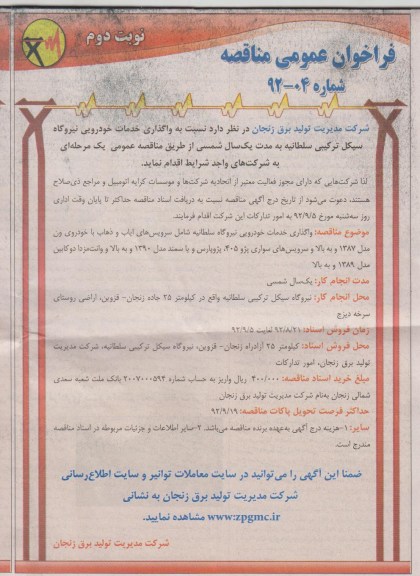 نوبت دوم
فراخوان عمومی مناقصه
شماره ۰۴-۹۲
شرکت مدیریت تولید برق زنجان در نظر دارد نسبت به واگذاری خدمات خودرویی نیروگاه
سیکل ترکیبی سلطانیه به مدت یک‌سال شمسی از طریق مناقصه عمومی یک مرحله‌ای
به شرکت‌های واجد شرایط اقدام نماید.
لذا شرکت‌هایی که دارای مجوز فعالیت معتبر از اتحادیه شرکت‌ها و موسسات کرایه اتومبیل و مراجع ذی‌صلاح
هستند، دعوت می‌شود از تاریخ درج آگهی مناقصه نسبت به دریافت اسناد مناقصه حداکثر تا پایان وقت اداری
روز سه‌شنبه مورخ ۹۲/۹/۵ به امور تدارکات این شرکت اقدام فرمایند.
موضوع مناقصه: واگذاری خدمات خودرویی نیروگاه سلطانیه شامل سرویس‌های ایاب و ذهاب با خودروی ون
مدل ۱۳۸۷ و به بالا و سرویس‌های سواری پژو ۴۰۵، پژوپارس و یا سمند مدل ۱۳۹۰ و به بالا و وانت‌مزدا دوکابین
مدل ۱۳۸۹ و به بالا
مدت انجام کار: یک‌سال شمسی
محل انجام کار: نیروگاه سیکل ترکیبی سلطانیه واقع در کیلومتر ۲۵ جاده زنجان- قزوین، اراضی روستای
سرخه دیزج
زمان فروش اسناد: ۹۲/۸/۲۱ لغایت ۹۲/۹/۵
محل فروش اسناد: کیلومتر ۲۵ آزادراه زنجان- قزوین، نیروگاه سیکل ترکیبی سلطانیه، شرکت مدیریت
تولید برق زنجان، امور تدارکات
مبلغ خرید اسناد مناقصه: ۴۰۰/۰۰۰ ریال واریز به حساب شماره ۲۰۰۷۰۰۰۵۹۴ بانک ملت شعبه سعدی
شمالی زنجان به‌نام شرکت مدیریت تولید برق زنجان
حداکثر فرصت تحویل پاکات مناقصه: ۹۲/۹/۱۹
سایر: ۱-هزینه درج آگهی به‌عهده برنده مناقصه می‌باشد. ۲-سایر اطلاعات و جزئیات مربوطه در اسناد مناقصه
مندرج است.
ضمنا این آگهی را می‌توانید در سایت معاملات توانیر و سایت اطلاع‌رسانی
شرکت مدیریت تولید برق زنجان به نشانی
www.zpgmc.ir مشاهده نمایید.
شرکت مدیریت تولید برق زنجان